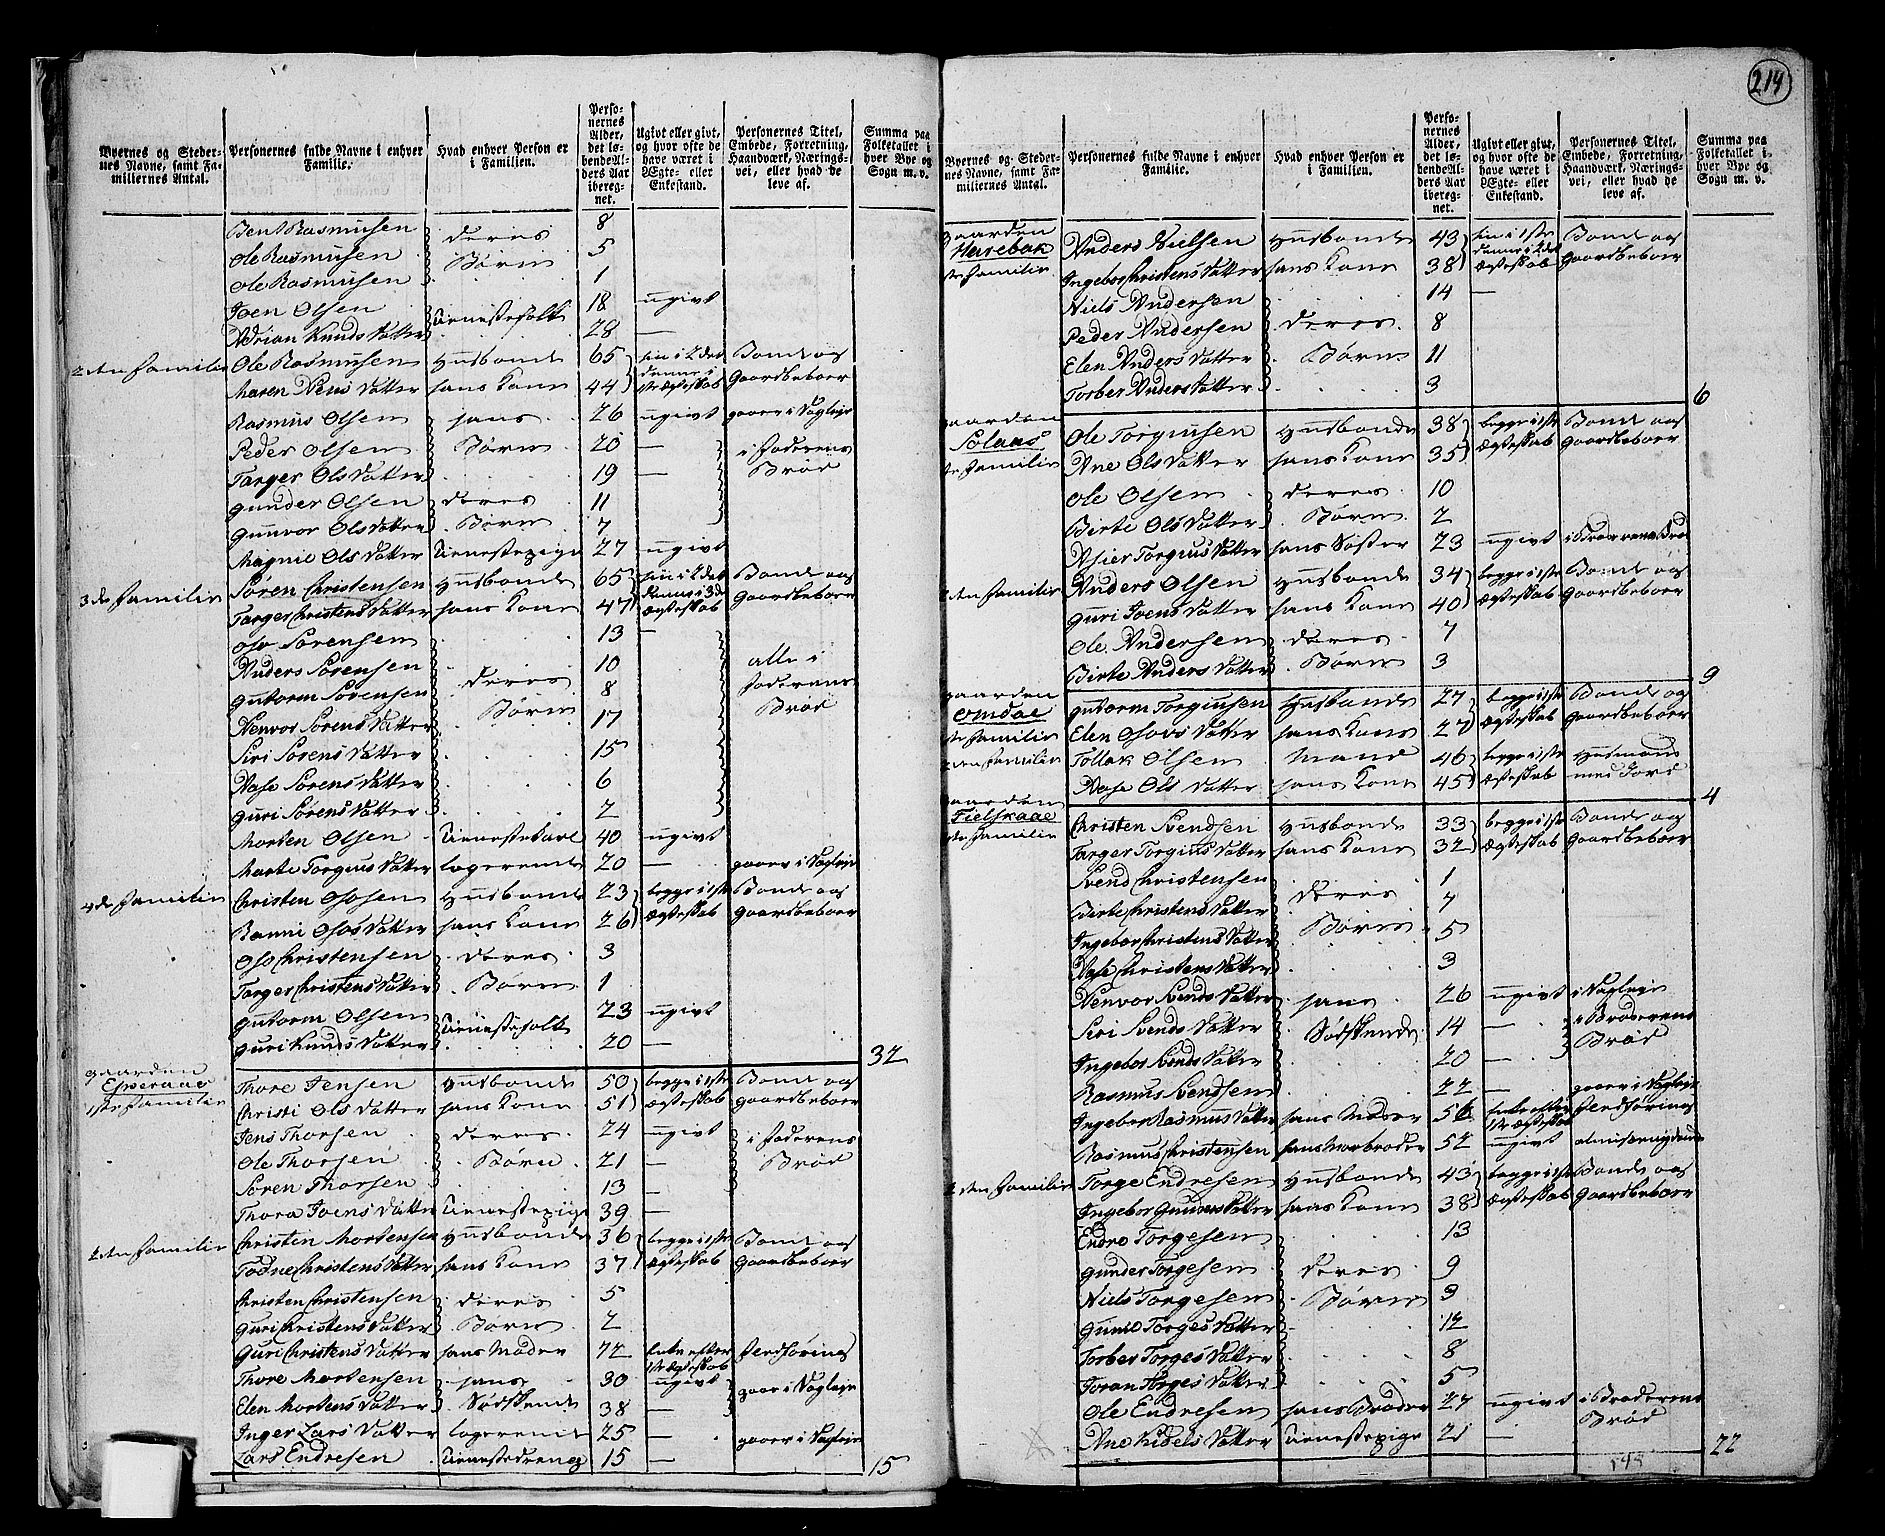 214
Byernes og Stedernes Navne, samt Familiernes Antal.
Personernes fulde Navne i enhver Familie.
Hvad enhver Person er i Familien.
Personernes Alder, det løbende Alders Aar iberegnet.
Ugivt eller givt, og hvor ofte de have været i Ægte- eller Enkestand.
Personernes Titel, Embede, Forretning, Haandværk, Næringsvei, eller hvad de leve af.
Summa paa Folketallet i hver Bye og Sogn m. v.
Bent Rasmusen deres 8
Ole Rasmusen Børn 5
Ole Rasmusen 1
Joen Olsen Tienestefolk 18 ugivt
Adrian Knuds Datter 28 —
2den Familie Ole Rasmusen Husbonde 65 Bonde og
Maren Jens Datter hans Kone 44 Gaardbeboer
Rasmus Olsen hans 26 ugivt gaaer i Dagleje
Peder Olsen Børn 20 — i Faderens
Targer Ols Datter 19 — Brød
Gunder Olsen deres 11
Gunvor Ols Datter Børn 7
Magnil Ols Datter Tienestepige 27 ugivt
3de Familie Søren Christensen Husbonde 65 Bonde og
Targer Christens Datter hans Kone 47 Ægteskab Gaardbeboer
Oso Sørensen 13 —
Anders Sørensen 10 alle i
Guttorm Sørensen deres 8 Faderens
Børn Brød
Sørens Datter 17
Siri Sørens Datter 15
Aase Sørens Datter 6
Guri Sørens Datter 2
Morten Olsen Tienestekarl 40 ugivt
Marte Torgius Datter logerende 20 — gaaer i Dagleje
4de Familie Christen Ososen Husbonde 23 begge i 1ste Bonde og
Ranni Osos Datter hans Kone 26 Ægteskab Gaardbeboer
Oso Christensen deres 3
Targer Christens Datter Børn 1
Guttorm Olsen Tienestefolk 23 ugivt
Guri Knuds Datter 20 —
32
Gaarden
Esperaas
1ste Familie Thore Jensen Husbonde 50 begge i 1ste Bonde og
Christi Ols Datter hans Kone 51 Ægteskab Gaardbeboer
Jens Thorsen deres 24 ugivt i Faderens
Ole Thorsen Børn 21 — Brød
Søren Thorsen 13 —
Thora Joens Datter Tienestepige 39 —
2den Familie Christen Mortensen Husbonde 36 begge i 1ste Bonde og
Todne Christens Datter hans Kone 37 Ægteskab Gaardbeboer
Christen Christensen deres 5
Guri Christens Datter Børn 2
Guri Christens Datter hans Moder 72 Enke efter 1ste Ægteskab
Thore Mortensen hans 30 ugivt gaaer i Dagleje
Elen Mortens Datter Sødskende 38 —
Inger Lars Datter logerende 25 — gaaer i Dagleje
Lars Endresen Tienestedreng 15 —
15
Byernes og Stedernes Navne, samt Familiernes Antal.
Personernes fulde Navne i enhver Familie.
Hvad enhver Person er i Familien.
Personernes Alder, det løbende Alders Aar iberegnet.
Ugivt eller givt, og hvor ofte de have været i Ægte- eller Enkestand.
Personernes Titel, Embede, Forretning, Haandværk, Næringsvei, eller hvad de leve af.
Summa paa Folketallet i hver Bye og Sogn m. v.
Gaarden
Harebak
1ste Familie Anders Nielsen Husbonde 43 Bonde og
Ingebor Christens Datter hans Kone 38 Ægteskab Gaardbeboer
Niels Andersen 14 —
Peder Andersen deres 8
Elen Anders Datter Børn 11
Torber Anders Datter 3
6
Gaarden
Solaas
1ste Familie Ole Torgiusen Husbonde 38 begge i 1ste Bonde og
Ane Ols Datter hans Kone 35 Ægteskab Gaardbeboer
Ole Olsen deres 10
Birte Ols Datter Børn 2
Torgius Datter hans Søster 23 ugivt
2den Familie Anders Olsen Husbonde 34 begge i 1ste Bonde og
Guri Joens Datter hans Kone 40 Ægteskab Gaardbeboer
Ole Andersen deres 7
Birte Anders Datter Børn 3
9
Gaarden
Omdal
1ste Familie Guttorm Torgiusen Husbonde 27 begge i 1ste Bonde og
Elen Osos Datter hans Kone 27 Ægteskab Gaardbeboer
2den Familie Tollak Olsen Mand 46 begge i 1ste Husmand
Aase Ols Datter hans Kone 45 Ægteskab med Jord
4
Gaarden
Fielskaae
1ste Familie Christen Svendsen Husbonde 33 begge i 1ste Bonde og
Targer Torgius Datter hans Kone 32 Ægteskab Gaardbeboer
Svend Christensen 1
Birte Christens Datter deres 7
Ingebor Christens Datter Børn 5
Aase Christens Datter 3
Svends Datter hans 26 ugivt i Dagleje
Siri Svends Datter Sødskende 14 — i Broderens
Ingebor Svends Datter 20 — Brød
Rasmus Svendsen 22 — gaaer i Dagleje
Ingebor Rasmus Datter hans Moder 56 Enke efter 1ste Ægteskab
Rasmus Christensen hans Morbroder 52 ugivt almisse nydende
2den Familie Torge Endresen Husbonde 43 begge i 1ste Bonde og
Ingebor Gunders Datter hans Kone 38 Ægteskab Gaardbeboer
Endre Torgesen 13
Gunder Torgesen deres 9
Niels Torgesen Børn 3
Gunild Torges Datter 12
Torber Torges Datter 8
Joran Torges Datter 5
Ole Endresen hans Broder 27 ugivt i Broderens
Brød
Ane Kidels Datter Tienestepige 21 —
22